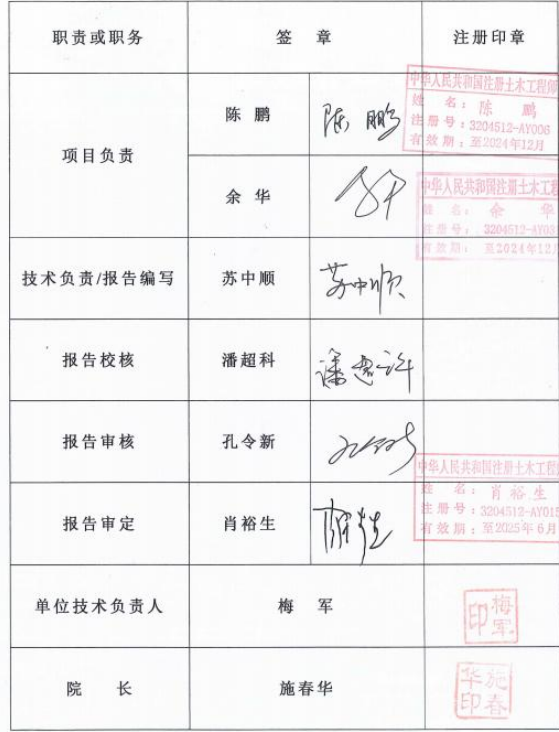 职责或职务 签 章 注册印章
中华人民共和国注册土木工程师
姓 名：陈 鹏
注册号：3204512-AY006
有效期：至2024年12月
项目负责 陈 鹏 陈鹏
中华人民共和国注册土木工程
姓 名：余 华
注册号：3204512-AY03
有效期：至2024年12月
余 华
技术负责/报告编写 苏中顺 苏中顺
报告校核 潘超科
报告审核 孔令新 孔令新
中华人民共和国注册土木工程
姓 名：肖裕生
注册号：3204512-AY015
有效期：至2025年6月
报告审定 肖裕生
单位技术负责人 梅 军 梅军印
院 长 施春华 施春华印